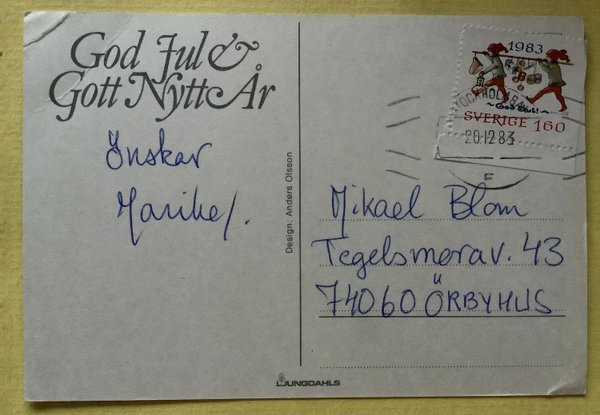 God Jul &
Gott Nytt År
Önskar
Design: Anders Olsson
1983
God Jul!
SVERIGE 160
20.12.83
Mikael Blom
Tegelsmorav. 43
74060 ÖRBYHUS
LJUNGDAHLS